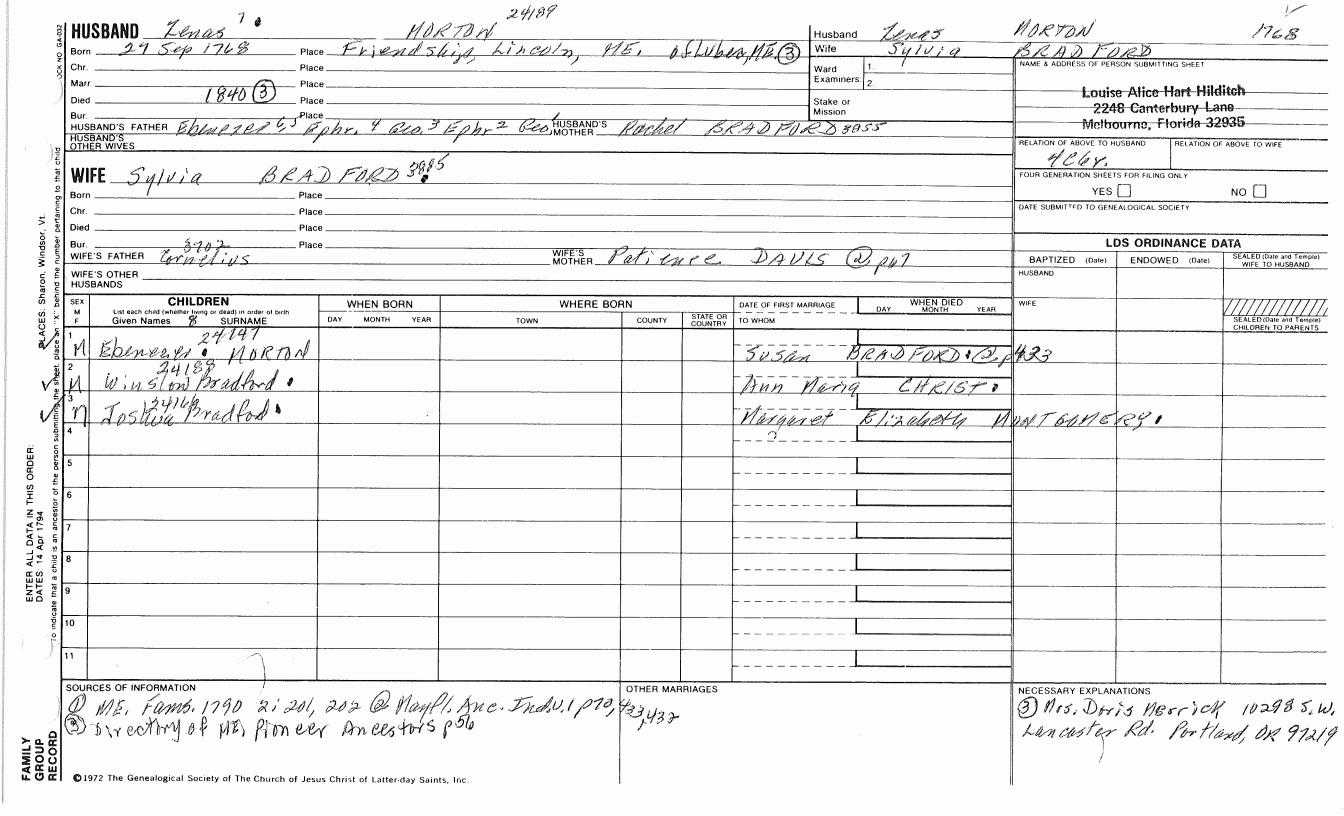 24189
HUSBAND Zenas 7 MORTON
Born 29 Sep 1768 Place Friendship, Lincoln, ME. of Lubec, ME. ③
Chr. Place
Marr. Place
Died 1840 ③ Place
Bur. Place
HUSBAND'S FATHER Ebenezer Ephr. 4 Geo. 3 Ephr 2 Geo. HUSBAND'S MOTHER Rachel BRADFORD 3855
HUSBAND'S OTHER WIVES
Husband Zenas MORTON 1768
Wife Sylvia BRADFORD
Ward 1.
Examiners: 2.
Stake or Mission
NAME & ADDRESS OF PERSON SUBMITTING SHEET
Louise Alice Hart Hilditch
2248 Canterbury Lane
Melbourne, Florida 32935
RELATION OF ABOVE TO HUSBAND RELATION OF ABOVE TO WIFE
FOUR GENERATION SHEETS FOR FILING ONLY
YES NO
DATE SUBMITTED TO GENEALOGICAL SOCIETY
WIFE Sylvia BRADFORD
Born Place
Chr. Place
Died Place
Bur. Place
3702
WIFE'S FATHER Cornelius WIFE'S MOTHER Patience DAVIS ② p67
WIFE'S OTHER HUSBANDS
LDS ORDINANCE DATA
BAPTIZED (Date) ENDOWED (Date) SEALED (Date and Temple) WIFE TO HUSBAND
HUSBAND
WIFE
SEALED (Date and Temple) CHILDREN TO PARENTS
SEX M F
CHILDREN
List each child (whether living or dead) in order of birth
Given Names & SURNAME
WHEN BORN
DAY MONTH YEAR
WHERE BORN
TOWN COUNTY STATE OR COUNTRY
DATE OF FIRST MARRIAGE
TO WHOM
WHEN DIED
DAY MONTH YEAR
24147
1 M Ebenezer MORTON Susan BRADFORD ② p433
24188
2 M Winslow Bradford Ann Maria CHRIST
3 M Joshua Bradford Margaret Elizabeth MONTGOMERY
4
5
6
7
8
9
10
11
SOURCES OF INFORMATION
① ME. Fams. 1790 2:201, 202 ② Mayfl. Anc. Ind. v.1 p70, 433, 432
③ Directory of ME. Pioneer Ancestors p56
OTHER MARRIAGES
NECESSARY EXPLANATIONS
③ Mrs. Doris Merrick 10298 S.W.
Lancaster Rd. Portland, OR 97219
©1972 The Genealogical Society of The Church of Jesus Christ of Latter-day Saints, Inc.
FAMILY GROUP RECORD
ENTER ALL DATA IN THIS ORDER:
DATES: 14 Apr 1794
PLACES: Sharon, Windsor, Vt.
To indicate that a child is an ancestor of the person submitting the sheet, place an "X" behind the number pertaining to that child